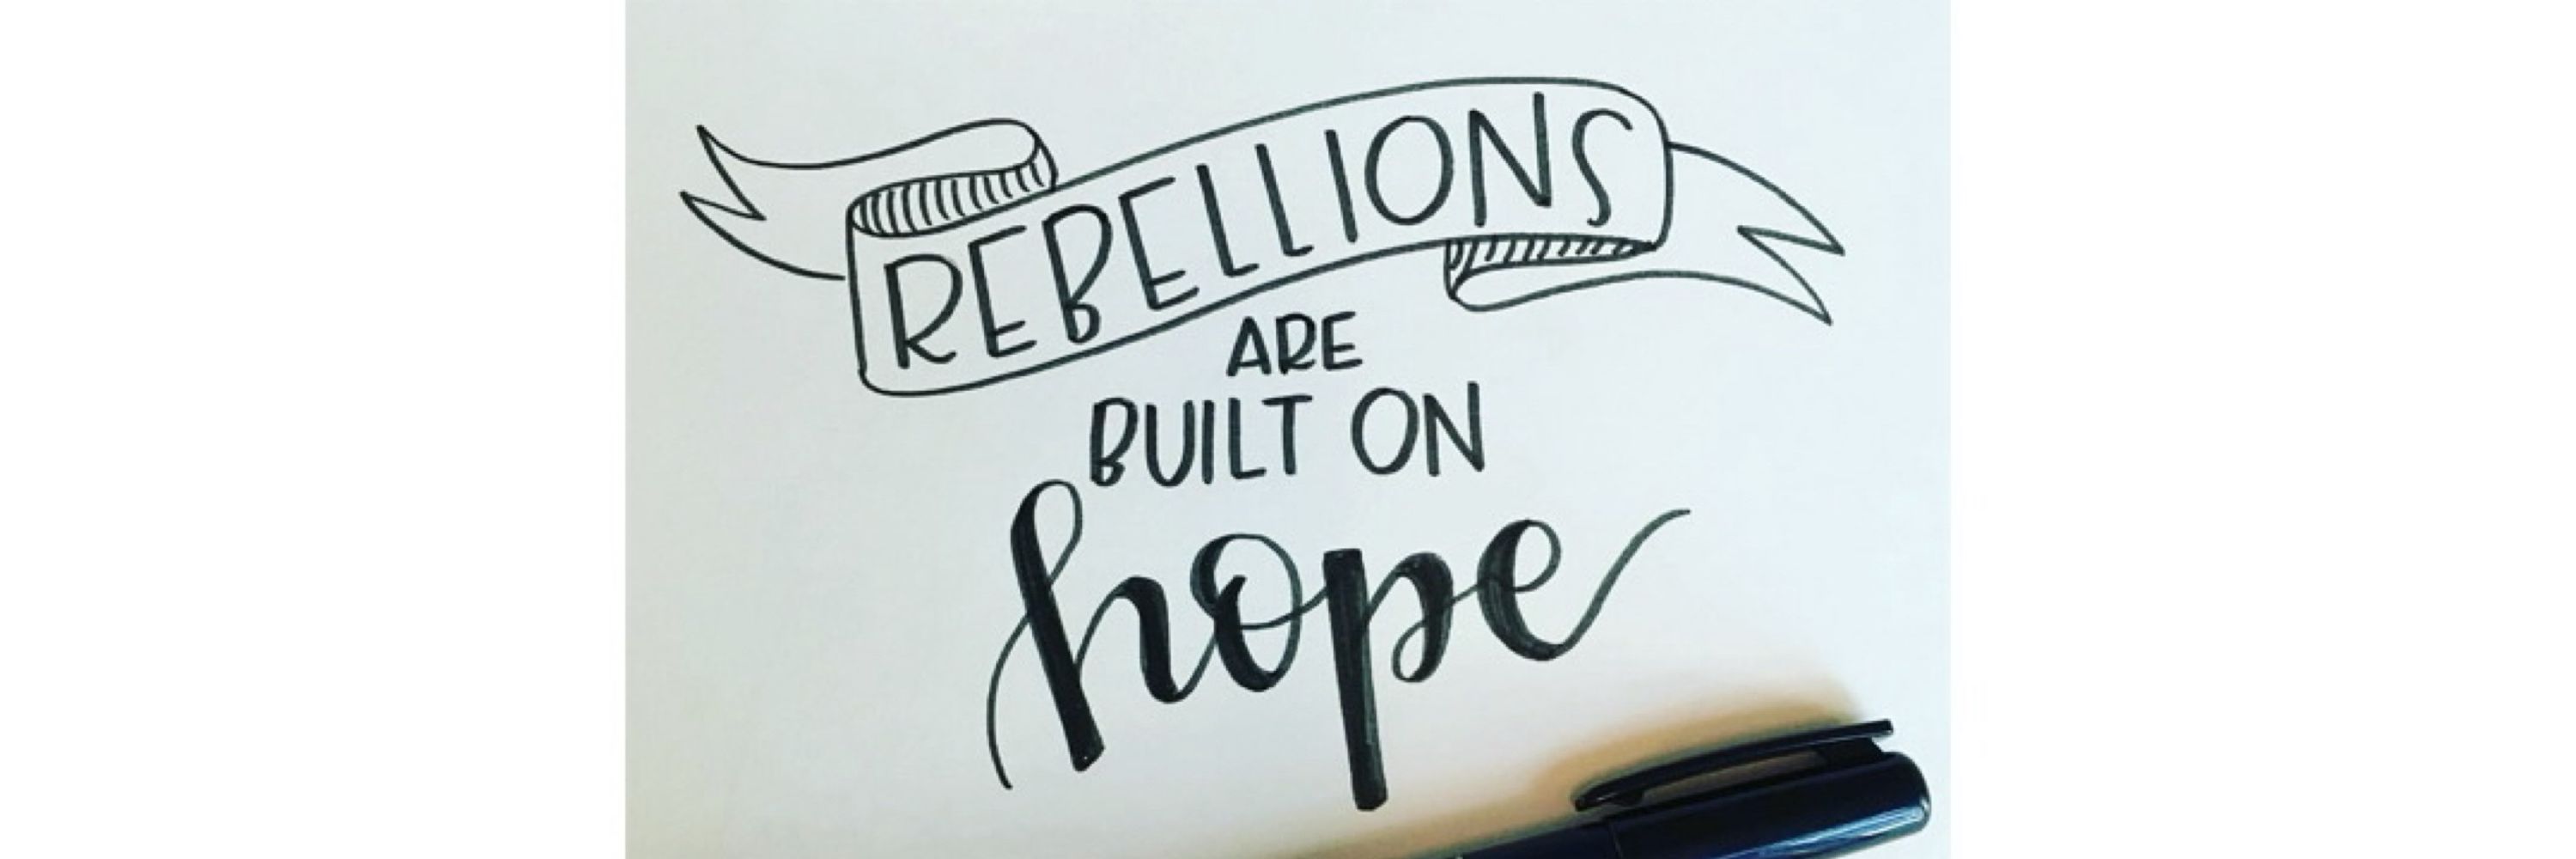 REBELLIONS
ARE
BUILT ON
hope